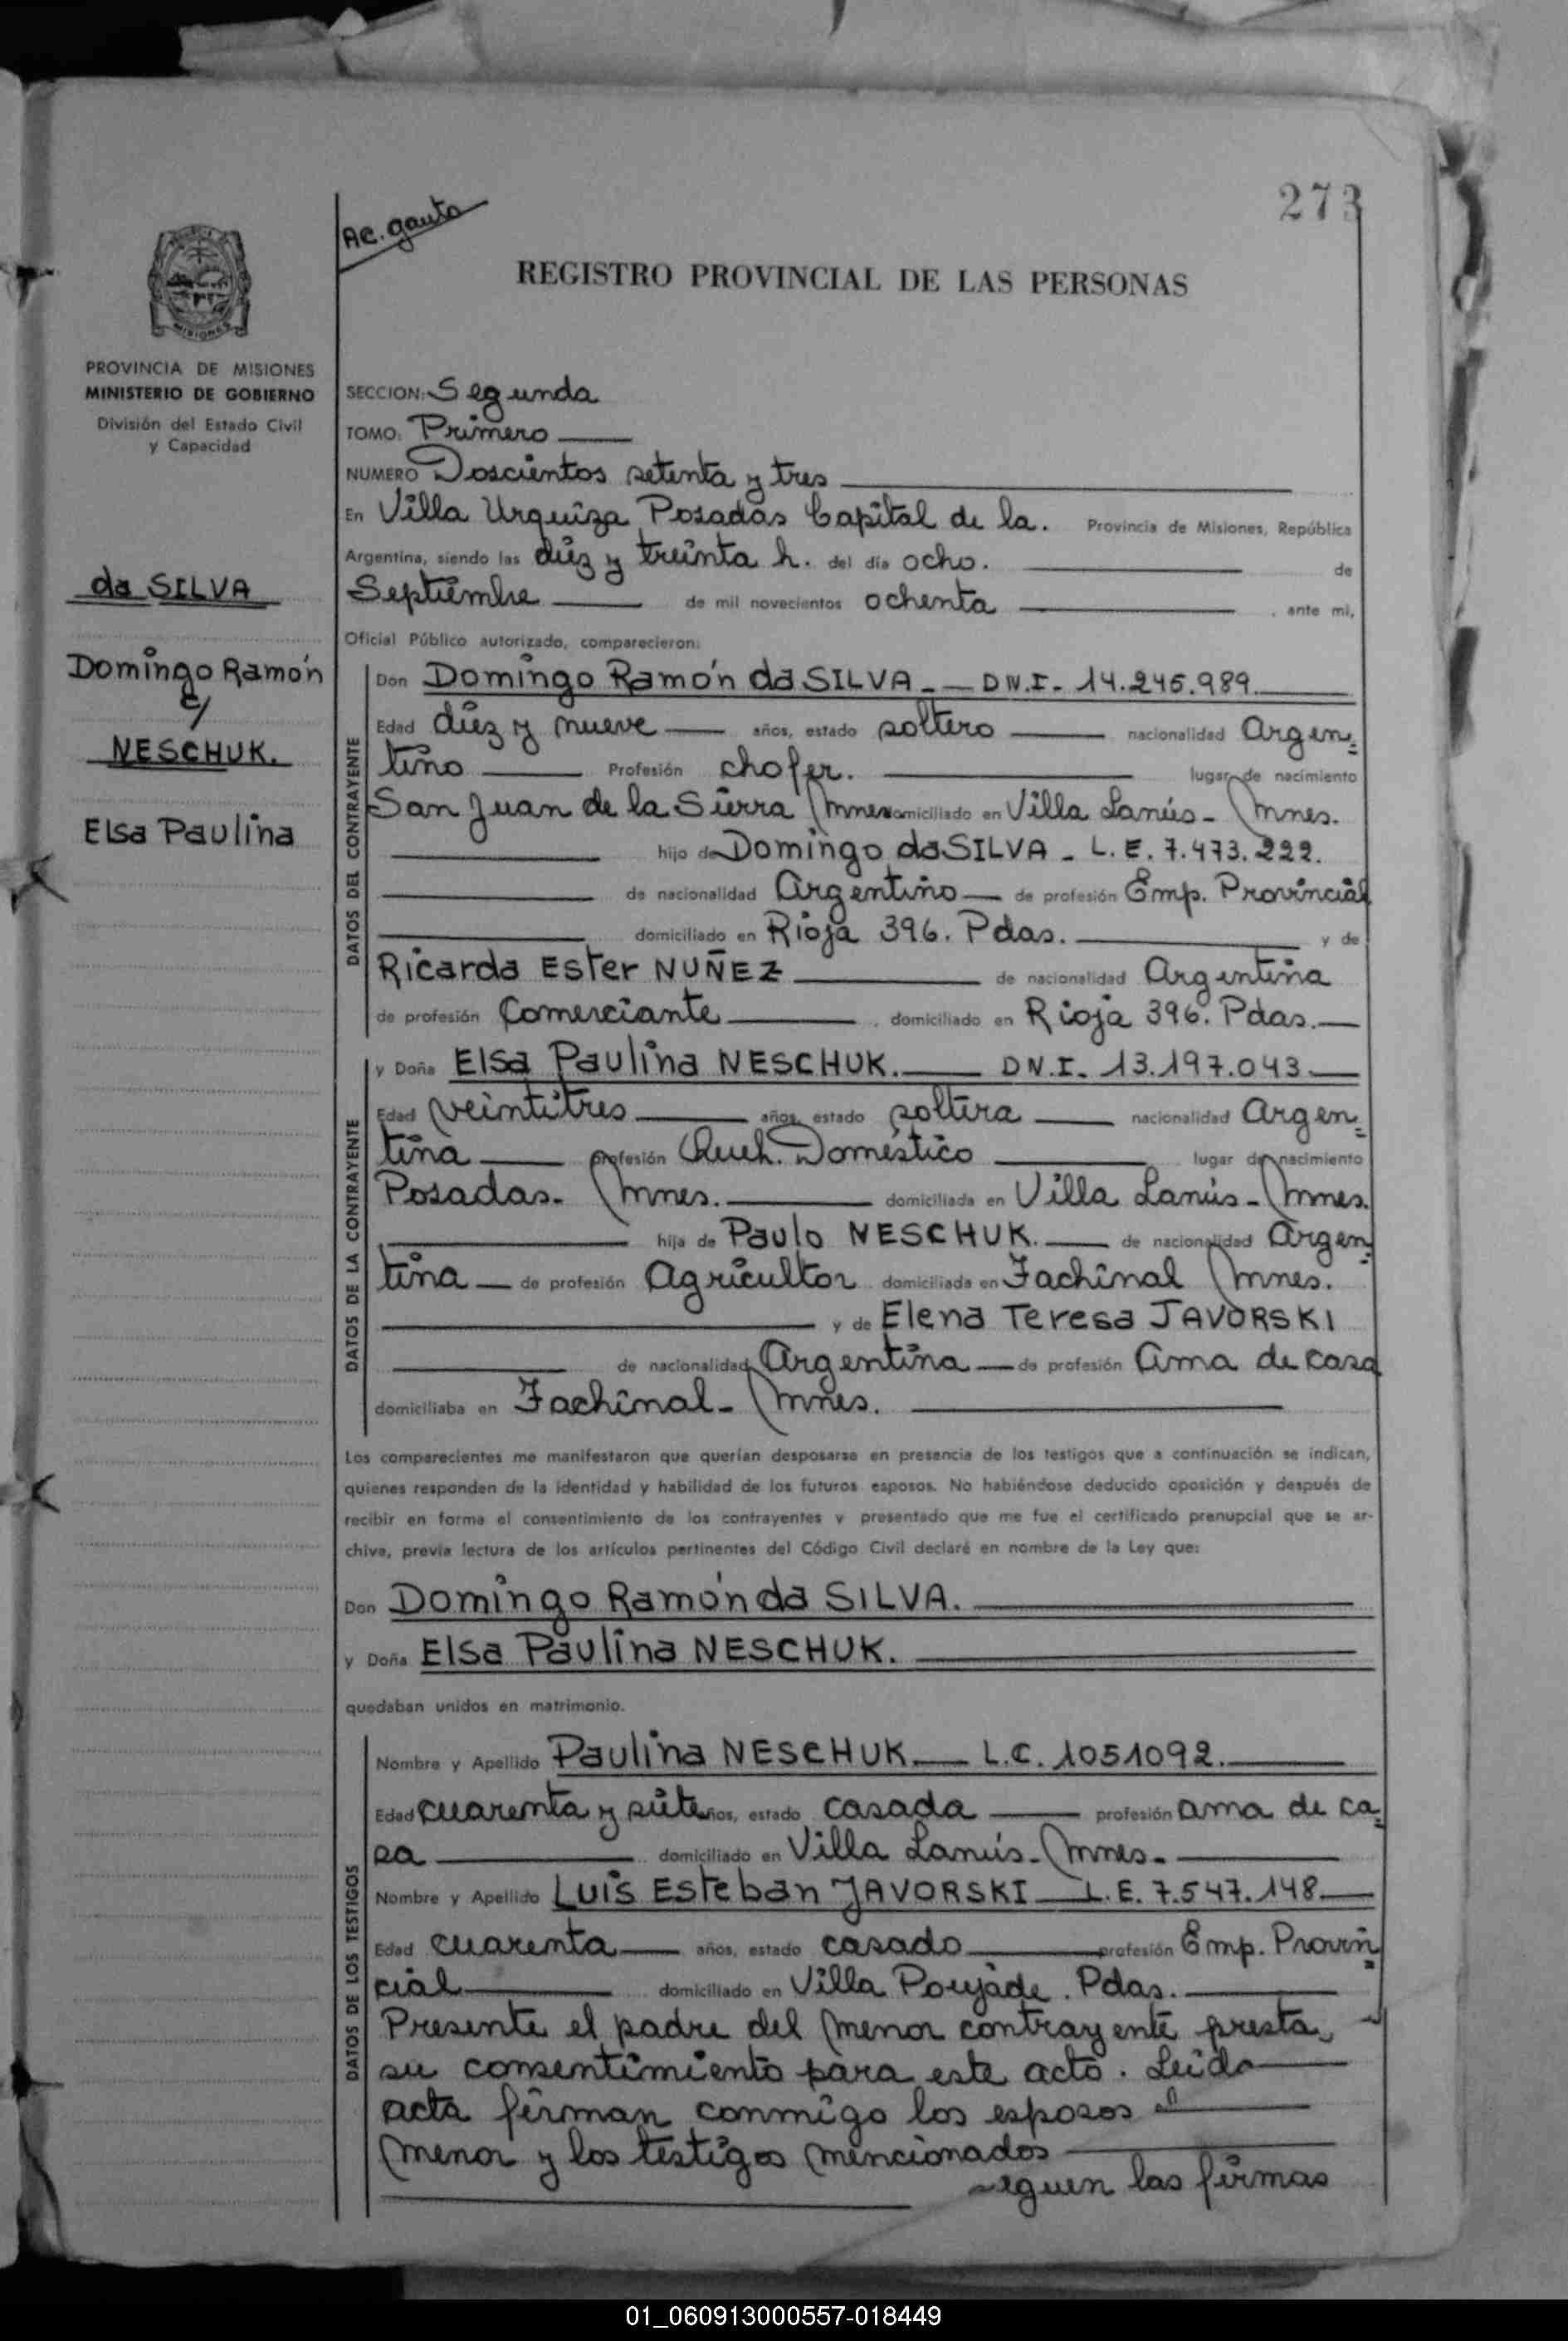 273
Ac. Gauto
REGISTRO PROVINCIAL DE LAS PERSONAS
MISIONES
PROVINCIA DE MISIONES
MINISTERIO DE GOBIERNO
División del Estado Civil
y Capacidad
da SILVA
Domingo Ramón
c/
NESCHUK.
Elsa Paulina
SECCION: Segunda
TOMO: Primero
NUMERO Doscientos setenta y tres
En Villa Urquiza Posadas Capital de la. Provincia de Misiones, República
Argentina, siendo las diez y treinta h. del día ocho. de
Septiembre de mil novecientos ochenta , ante mi,
Oficial Público autorizado, comparecieron:
DATOS DEL CONTRAYENTE
Don Domingo Ramón da SILVA - DN.I- 14.245.989
Edad diez y nueve años, estado soltero nacionalidad Argen=
tino Profesión chofer. lugar de nacimiento
San Juan de la Sierra Mnes domiciliado en Villa Lanús- Mnes.
hijo de Domingo da SILVA - L.E. 7.473.222.
de nacionalidad Argentino de profesión Emp. Provincial
domiciliado en Rioja 396. Pdas. y de
Ricarda Ester NUÑEZ de nacionalidad Argentina
de profesión Comerciante , domiciliado en Rioja 396. Pdas.
DATOS DE LA CONTRAYENTE
y Doña Elsa Paulina NESCHUK. DN.I. 13.197.043
Edad veintitres años, estado soltera nacionalidad Argen=
tina profesión Queh. Doméstico lugar de nacimiento
Posadas- Mnes. domiciliada en Villa Lanús- Mnes.
hija de Paulo NESCHUK. de nacionalidad Argen=
tina de profesión Agricultor domiciliada en Fachinal Mnes.
y de Elena Teresa JAVORSKI
de nacionalidad Argentina de profesión Ama de casa
domiciliaba en Fachinal- Mnes.
Los comparecientes me manifestaron que querían desposarse en presencia de los testigos que a continuación se indican,
quienes responden de la identidad y habilidad de los futuros esposos. No habiéndose deducido oposición y después de
recibir en forma el consentimiento de los contrayentes y presentado que me fue el certificado prenupcial que se ar-
chiva, previa lectura de los artículos pertinentes del Código Civil declaré en nombre de la Ley que:
Don Domingo Ramón da SILVA.
y Doña Elsa Paulina NESCHUK.
quedaban unidos en matrimonio.
DATOS DE LOS TESTIGOS
Nombre y Apellido Paulina NESCHUK L.C. 1051092.
Edad cuarenta y siete años, estado casada profesión ama de ca=
sa domiciliado en Villa Lanús- Mnes-
Nombre y Apellido Luis Esteban JAVORSKI L.E. 7.547.148
Edad cuarenta años, estado casado profesión Emp. Provin=
cial domiciliado en Villa Poujade. Pdas.
Presente el padre del menor contrayente presta
su consentimiento para este acto. Leida
acta firman conmigo los esposos el
menor y los testigos mencionados
siguen las firmas
01_060913000557-018449